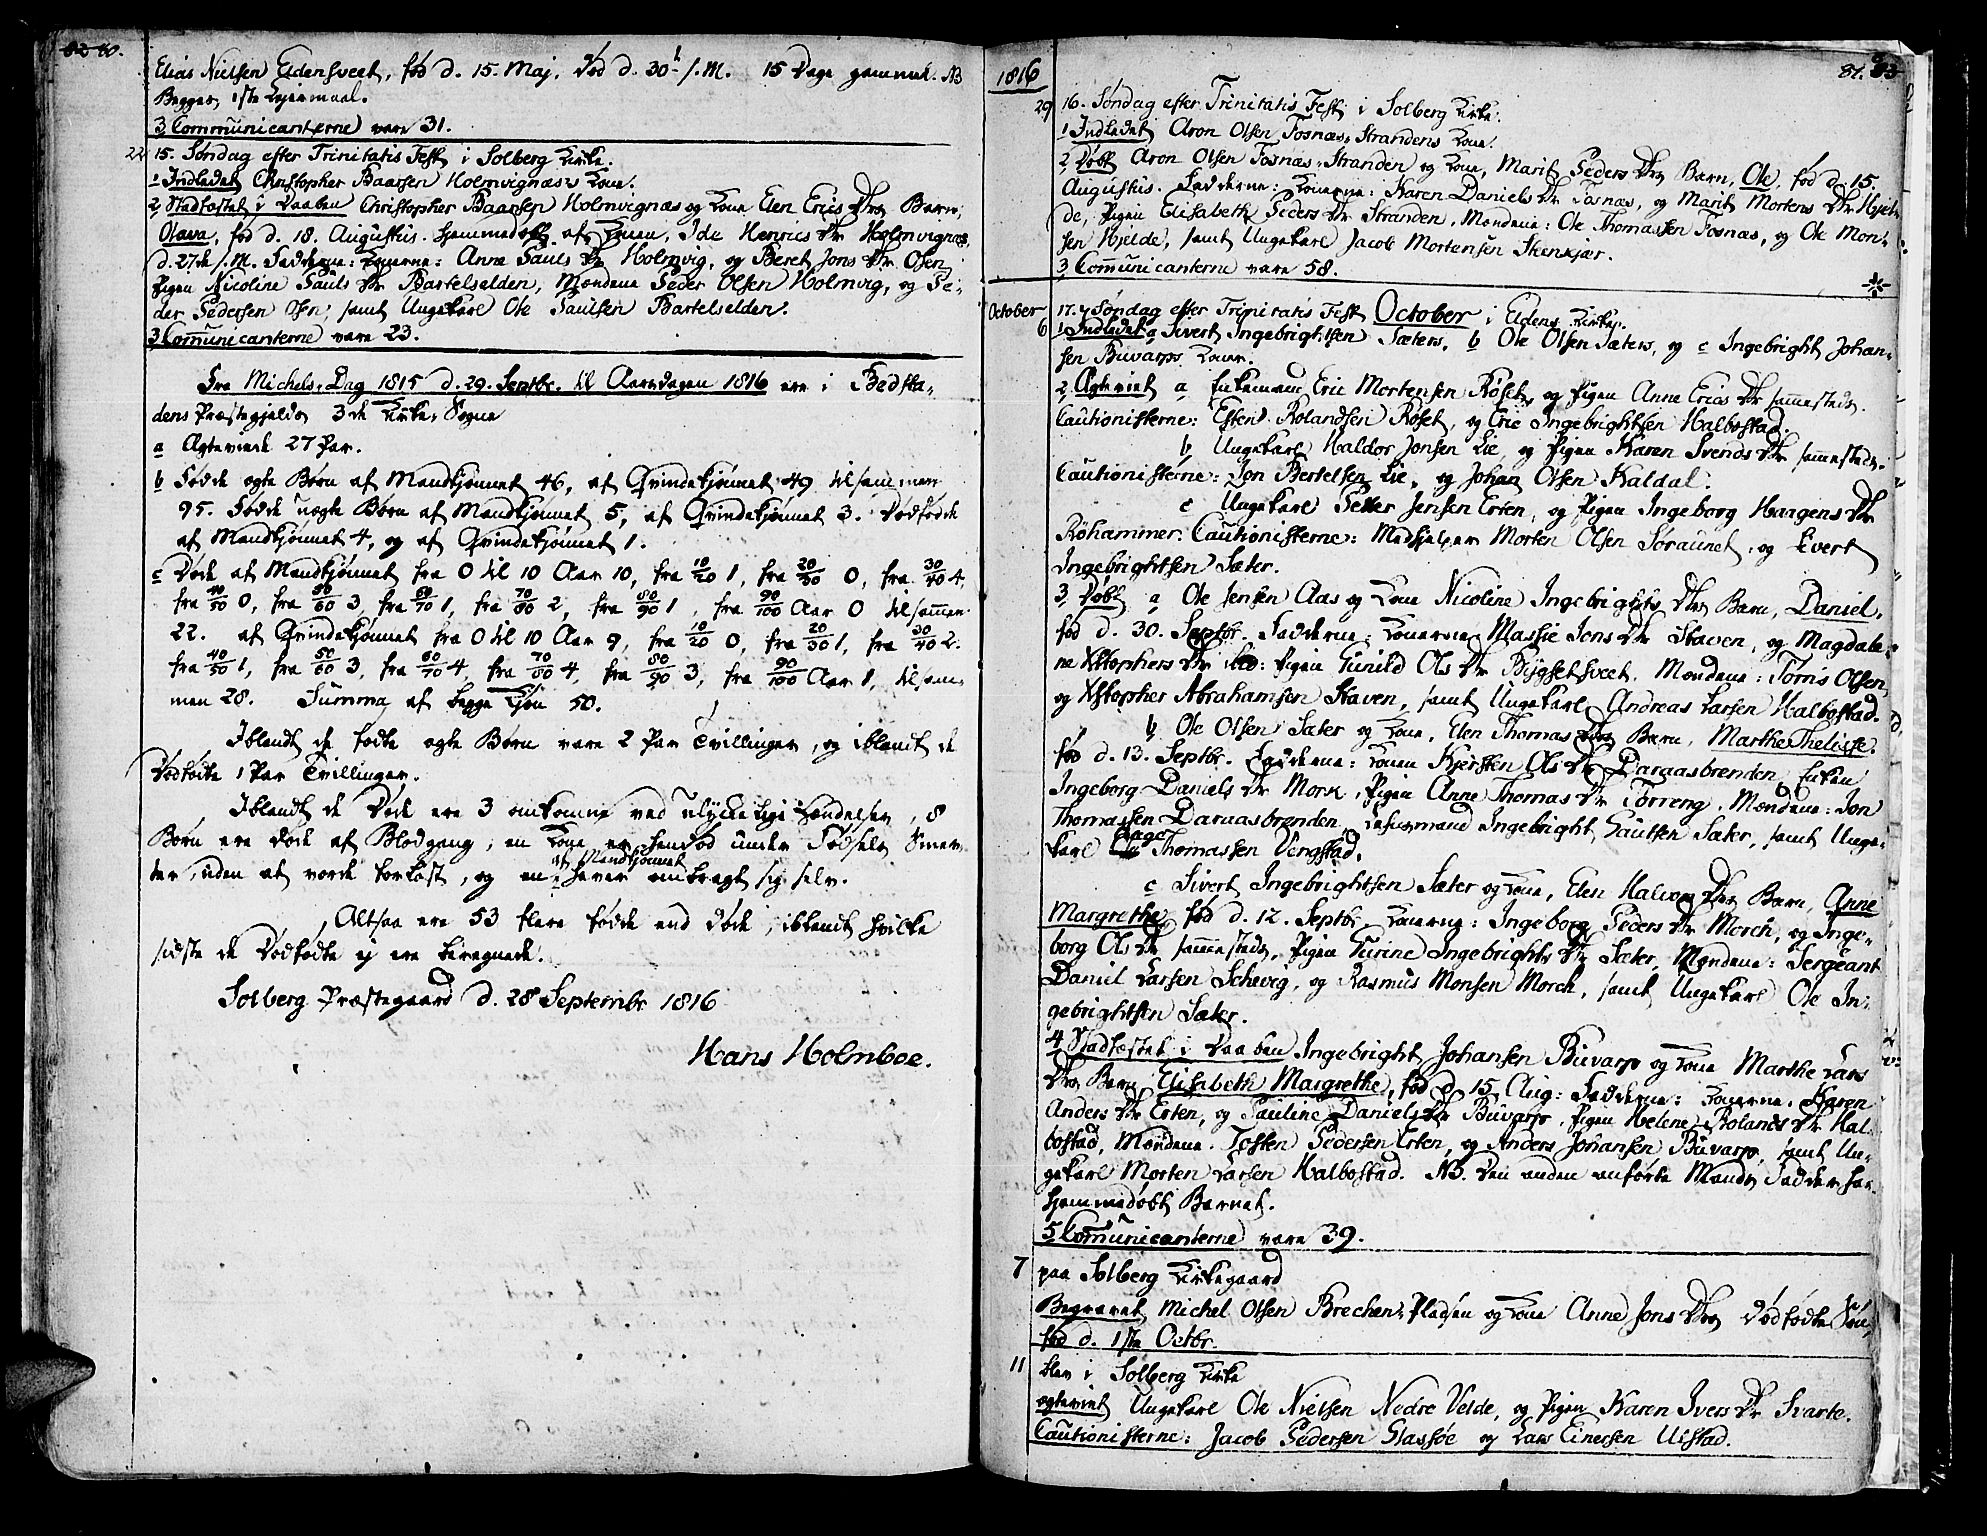 80.
Elias Nielsen Eldensveet, fød d. 15. Maj, død d. 30t s.M. 15 Dage gammel. NB
Begges 1ste Lejermaal.
3, Communicanterne vare 31.
22 15. Søndag efter Trinitatis Fest i Solberg Kirke.
1 Indledet Christopher Baarsen Holmvignæs's Kone.
2, Stadfæstet i Daaben Christopher Baarsen Holmvignæs og Kone Elen Erics Drs Barn,
Olava, fød d. 18. Augustus. hjemmedøbt af Konen, Ide Henrics Dr Holmvignæs,
d. 27de s.M. Fadderne: Konerne: Anne Pauls Dr Holmvig, og Beret Jons Dr Olsen
Pigen Nicoline Pauls Dr Bartelselden, Mændene Peder Olsen Holmvig, og Pe-
der Pedersen Osen, samt Ungekarl Ole Paulsen Bartelselden.
3, Comunicanterne vare 23.
Fra Michels-Dag 1815 d. 29. Septbr. til Aarsdagen 1816 ere i Bedsta-
dens Præstegjelds 3de Kirke-Sogne
a Ægteviede 27 Par.
b Fødde ægte Børn af Mandkjønnet 46, af Qvindekjønnet 49 tilsammen
95. Fødde uægte Børn af Mandkjønnet 5, af Qvindekjønnet 3. Dødfødde
af Mandkjønnet 4, og af Qvindekjønnet 1.
c Døde af Mandkjønnet fra 0 til 10 Aar 10, fra 10/20 1, fra 20/30 0, fra 30/40 4,
fra 40/50 0, fra 50/60 3, fra 60/70 1, fra 70/80 2, fra 80/90 1, fra 90/100 Aar 0 tilsammen
22. af Qvindekjønnet fra 0 til 10 Aar 9, fra 10/20 0, fra 20/30 1, fra 30/40 2.
fra 40/50 1, fra 50/60 3, fra 60/70 4, fra 70/80 4, fra 80/90 3, fra 90/100 Aar 1, tilsam-
men 28. Summa af begge Kjøn 50.
Iblandt de fødte ægte Børn vare 2 Par Tvillinger, og iblandt de
Dødfødte 1 Par Tvillinger.
Iblandt de Døde ere 3 omkomne ved ulykkelige Hændelser, 8
Børn ere døde af Blodgang; en Kone er hendød under Fødsels Smer-
ter, uden at vorde forløst, og en af Mandkjønnet haver ombragt sig selv.
Altsaa ere 53 flere fødde end døde, iblandt hvilke
sidste de Dødfødte ej ere beregnede.
Solberg Præstegaard d. 28 Septembr 1816
Hans Holmboe.
1816
81.
29 16. Søndag efter Trinitatis Fest i Solberg Kirke.
1 Indledet Aron Olsen Fosnæs-Strandens Kone.
2, Døbt Aron Olsen Fosnæs-Stranden og Kone, Marit Peders Drs Barn, Ole, fød d. 15.
Augustus. Fadderne: Konerne: Karen Daniels Dr Fosnæs, og Marit Mortens Dr Hjel-
de, Pigen Elisabeth Peders Dr Stranden, Mændene: Ole Thomassen Fosnæs, og Ole Mon-
sen Hjelde, samt Ungekarl Jacob Mortensen Stenkjær.
3, Communicanterne vare 58.
October 17. Søndag efter Trinitatis Fest October i Eldens Kirke.
6 1 Indledet a Sivert Ingebrightsen Sæters, b Ole Olsen Sæters, og c Ingebright Johan-
sen Buvarps Koner.
2 Ægteviet a Enkemand Eric Mortensen Røset, og Pigen Anne Erics Dr sammesteds.
Cautionisterne: Esten Rolandsen Røset, og Eric Ingebrightsen Halbostad.
b Ungekarl Haldor Jonsen Lie, og Pigen Karen Svends Dr sammesteds.
Cautionisterne: Jon Bertelsen Lie, og Johan Olsen Kaldal.
c Ungekarl Peter Jensen Erten, og Pigen Ingeborg Haagens Dr
Røhammer. Cautionisterne: Medhjelper Morten Olsen Soraunet, og Sivert
Ingebrightsen Sæter.
3, Døbt a Ole Jensen Aas og Kone Nicoline Ingebrights Drs Barn, Daniel,
fød d. 30. Septbr. Fadderne: Konerne Massie Jons Dr Staven, og Magdale-
ne Xstophers Dr Pigen Gunild Ols Dr Bygsetsveet. Mændene: Tørris Olsen
og Xstopher Abrahamsen Staven, samt Ungekarl Andreas Larsen Halbostad.
b Ole Olsen Sæter og Kone, Elen Thomas Drs Barn, Marthe Thelisse
fød d. 13. Septbr. Fadderne: Konen Kjersten Ols Dr Daraasbrenden, Enken
Ingeborg Daniels Dr Mork, Pigen Anne Thomas Dr Torreng. Mændene: Jon
Thomassen Daraasbrenden, Lehnsmand Ingebright Gautsen Sæter, samt Unge-
karl Aage Thomassen Vengstad.
c Sivert Ingebrightsen Sæter og Kone, Elen Halvors Drs Barn, Anne
Margrethe fød d. 12. Septbr. Konerne: Ingeborg Peders Dr Morch, og Inge-
borg Ols Dr sammesteds, Pigen Gurine Ingebrights Dr Sæter, Mændene: Sergeant
Daniel Larsen Schevig, og Rasmus Monsen Morch, samt Ungekarl Ole In-
gebrightsen Sæter.
4 Stadfæstet i Daaben Ingebright Johansen Buvarp og Kone Marthe Lars
Drs Barn Elisabeth Margrethe, fød d. 15. Aug: Fadderne: Konerne. Karen
Anders Dr Erten, og Pauline Daniels Dr Buvarp, Pigen Helene Rolands Dr Hal-
bostad, Mændene. Tosten Pedersen Erten, og Anders Johansen Buvarp, samt Un-
gekarl Morten Larsen Halbostad. NB. Den anden anførte Mands Fadder har
hjemmedøbt Barnet.
5 Comunicanterne vare 39.
7 paa Solberg Kirkegaard
Begravet Michel Olsen Brechen-Pladsen og Kone Anne Jons Drs dødfødte Søn,
fød d. 1ste Octbr.
11 blev i Solberg Kirke
ægteviet Ungekarl Ole Nielsen Nedre Velde, og Pigen Karen Ivers Dr Svarte.
Cautionisterne: Jacob Pedersen Glassøe og Lars Einersen Ulstad.